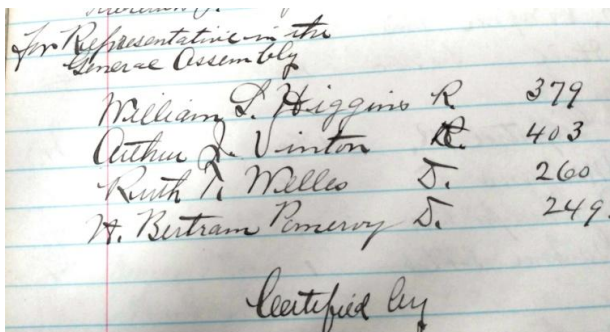 for Representative in the
General Assembly
William L. Higgins R. 379
Arthur J. Vinton R. 403
Ruth T. Welles D. 260
H. Bertram Pomeroy D. 249
Certified by